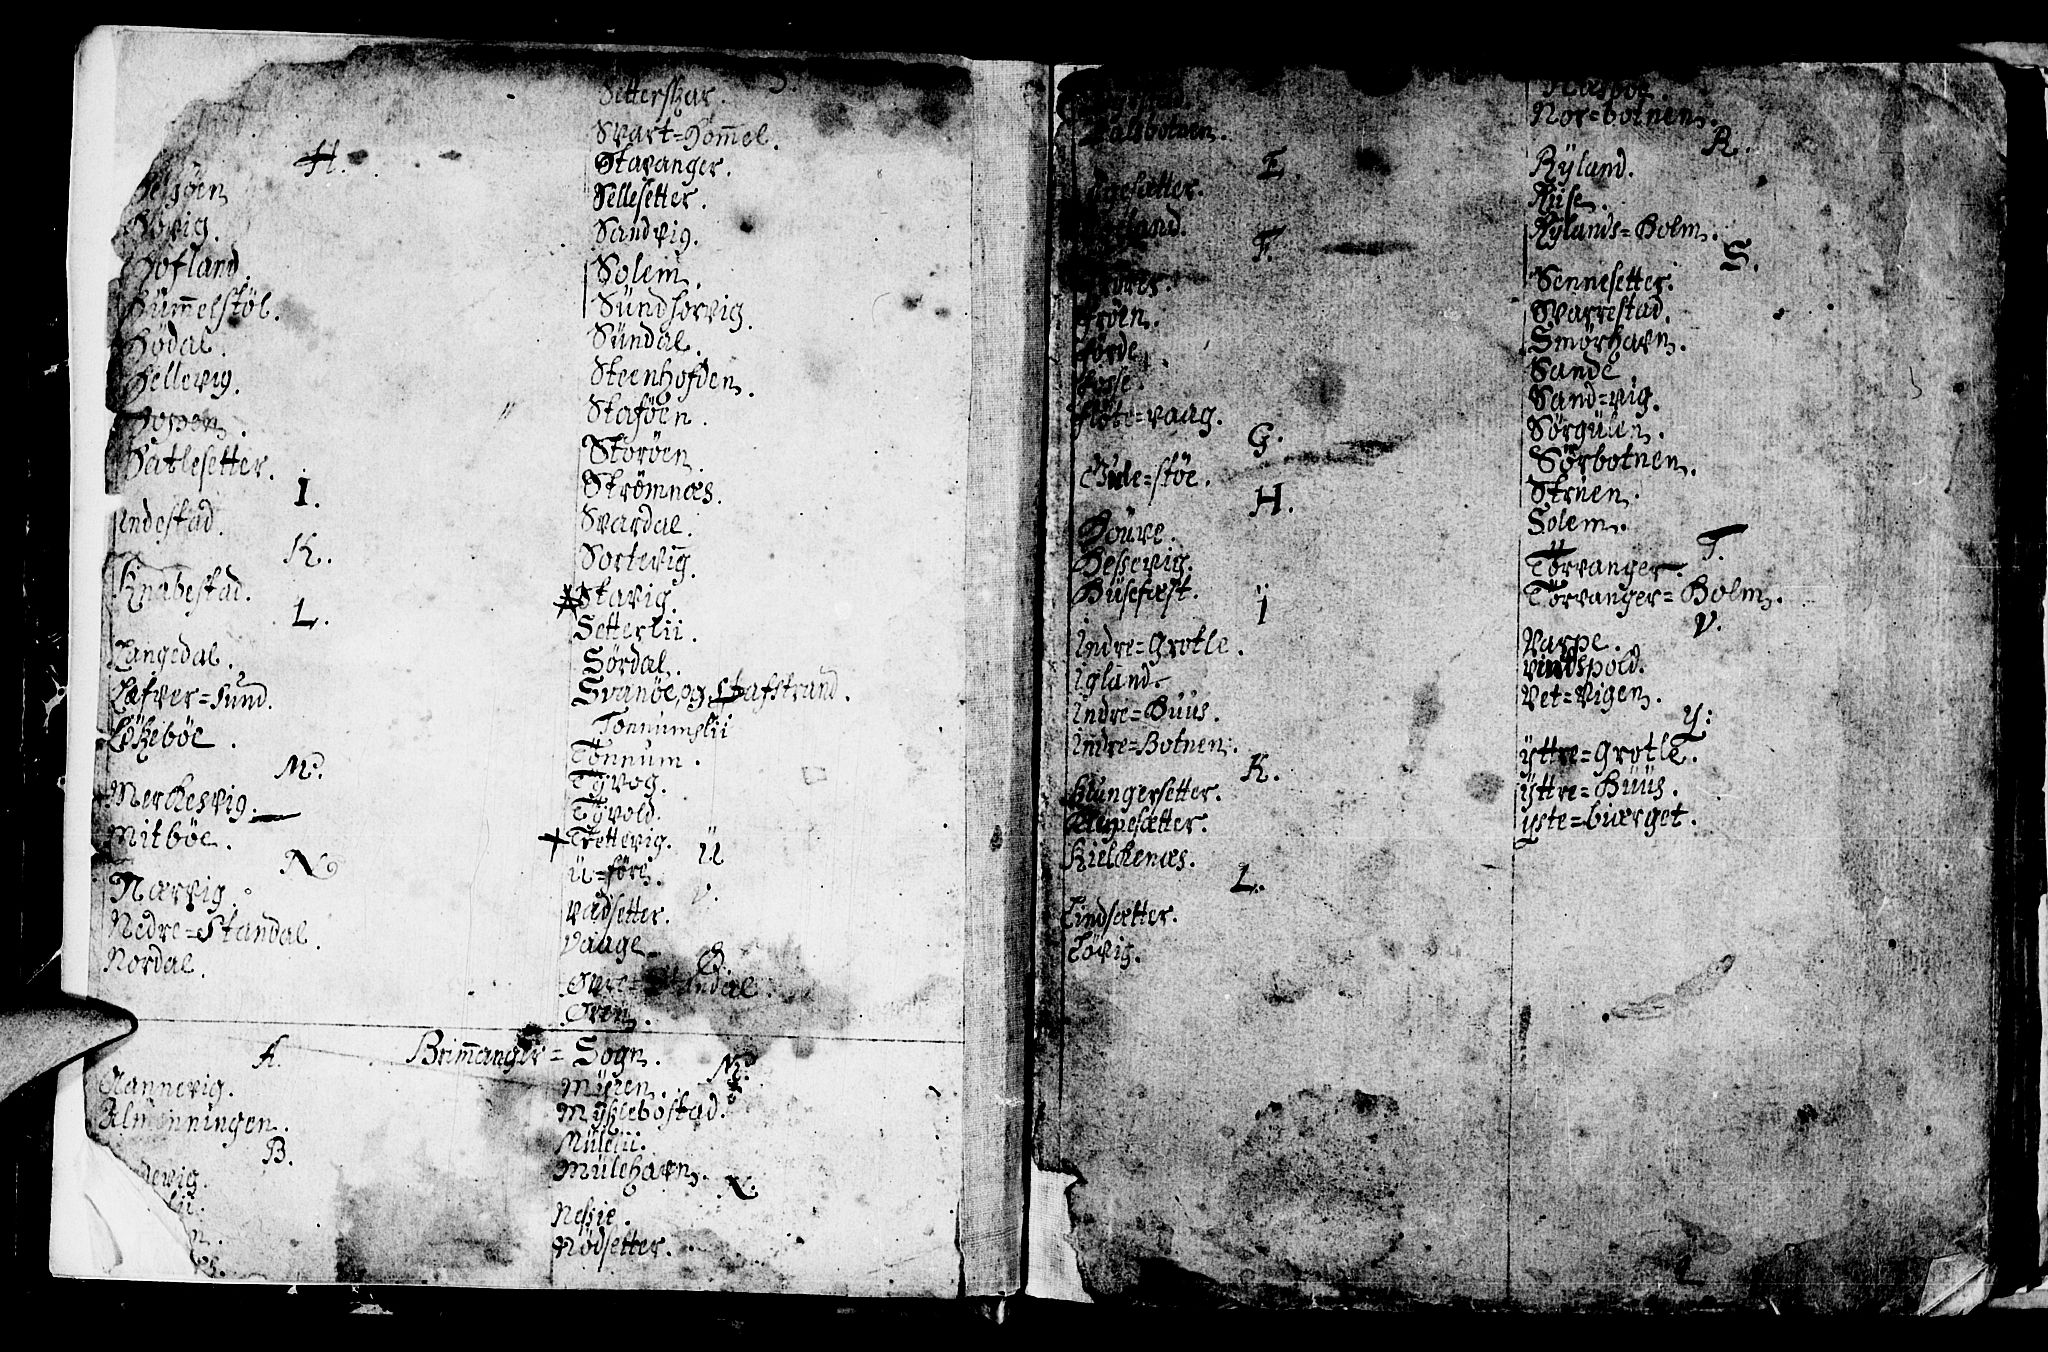 H.
Hofland.
Hümelstøl.
Hødal.
Hellevig.
Hopen.
Hatlesetter.
I.
Indestad.
K.
Knabestad.
L.
Langedal.
Lafver=Sund.
Løkebøe.
M.
Merckesvig.
Mitbøe.
N
Nærvig.
Nedre=Standal.
Nordal.
S.
Setterskar.
Svart=Homel.
Stavanger.
Sellesetter.
Sandvig.
Solem.
Sündhorvig.
Sündal.
Steenhofden.
Staføen.
Storøen.
Strømnæs.
Svardal.
Sortevig.
Stavig.
Setterlii.
Sørdal.
Svanøe, og Stafstrand.
Tonnumslii
Tønnum.
Tyvog.
Tyvold.
Trettevig.
Ü.
Ü=føre.
V.
Vadsetter.
Vaage
Ø.
Øren.
Brimanger=Sogn.
A.
Aannevig.
Almenningen.
B.
M.
Myren.
Myklebostad.
Mülelii.
Mülehavn.
N.
Nessie.
Nødsetter.
E.
F.
Frøen.
Førde
Fosse.
Fløte=vaag.
G.
Gule=støe.
H.
Houve.
Hessevig.
Hüsefæst.
I
Indre=Grotle.
Igland.
Indre=Huus.
Indre=Botnen.
K.
Klungersetter.
Klepesætter.
Kielckenæs.
L.
Lindsætter.
Løvig.
Nor=botnen.
R.
Ryland.
Riise.
Rylands=Holm.
S.
Sennesetter.
Svarrestad.
Smørhavn.
Sande
Sand=vig.
Sørgülen.
Sørbotnen.
Strüen.
Solem.
T.
Torvanger.
Torvanger=Holm.
V.
Varpe.
Vindspold.
Vet=vigen.
Y.
Yttre=Grotle.
Yttre=Hüüs.
Yste=bærget.